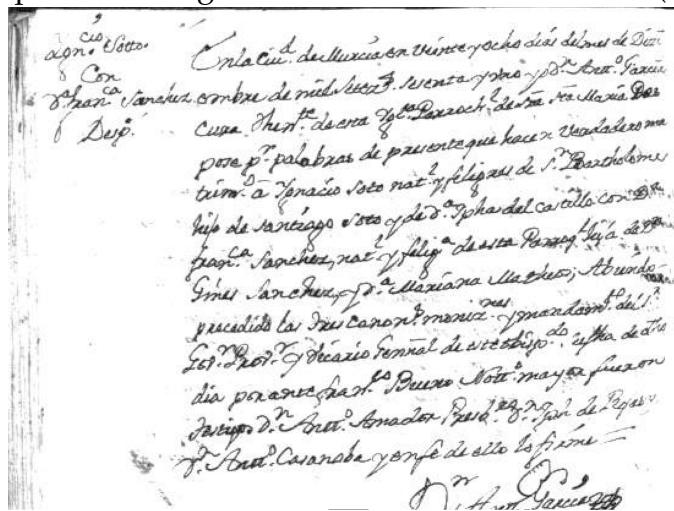 Ygn.cio Sotto.
Con
D.a Fran.ca Sanchez
Desp.
En la Ciu.d de Murcia en veinte y ocho dias del mes de Dizi
embre de mil Setez.s Sesenta y uno yo D.n Antt.o Garcia
Cura Then.te de esta Ygl.a Parroch.l de Sta Maria Des
pose p.r palabras de presente que hacen verdadero ma
trim.o a Ygnacio Soto nat.l y feligres de S.n Bartholome
hijo de Santiago Soto y de D.a Jpha del Castillo con D.a
Fran.ca Sanchez, nat.l y felig.a de esta Parroq.l hija de D.n
Gines Sanchez, y D.a Mariana Matheo; Abiendo
precedido las tres canon.s moniz.nes y mandam.to del S.r
Gov.r Prov.r y Vicario General de este obisp.do, su fha de dho
dia por ante Fran.co Bueno Nott.o mayor fueron
testigos D.n Antt.o Amador Presb.ro D.n Jph de Rojas
D.n Antt.o Casanoba y en fe de ello lo firme =
D.n Antt.o Garcia